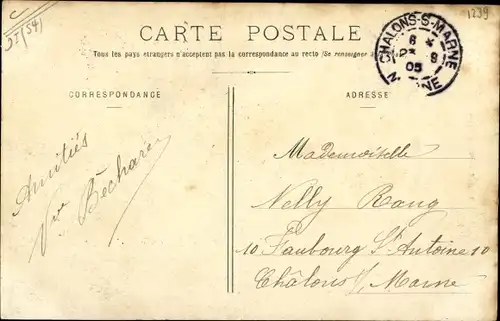 1239
(54)
CARTE POSTALE
Tous les pays étrangers n'acceptent pas la correspondance au recto (Se renseigner
CHALONS-S-MARNE
6 *
8
05
MARNE
CORRESPONDANCE
ADRESSE
Amitiés
Mademoiselle
Nelly Roug
10 Faubourg St Antoine 10
Châlons s/ Marne